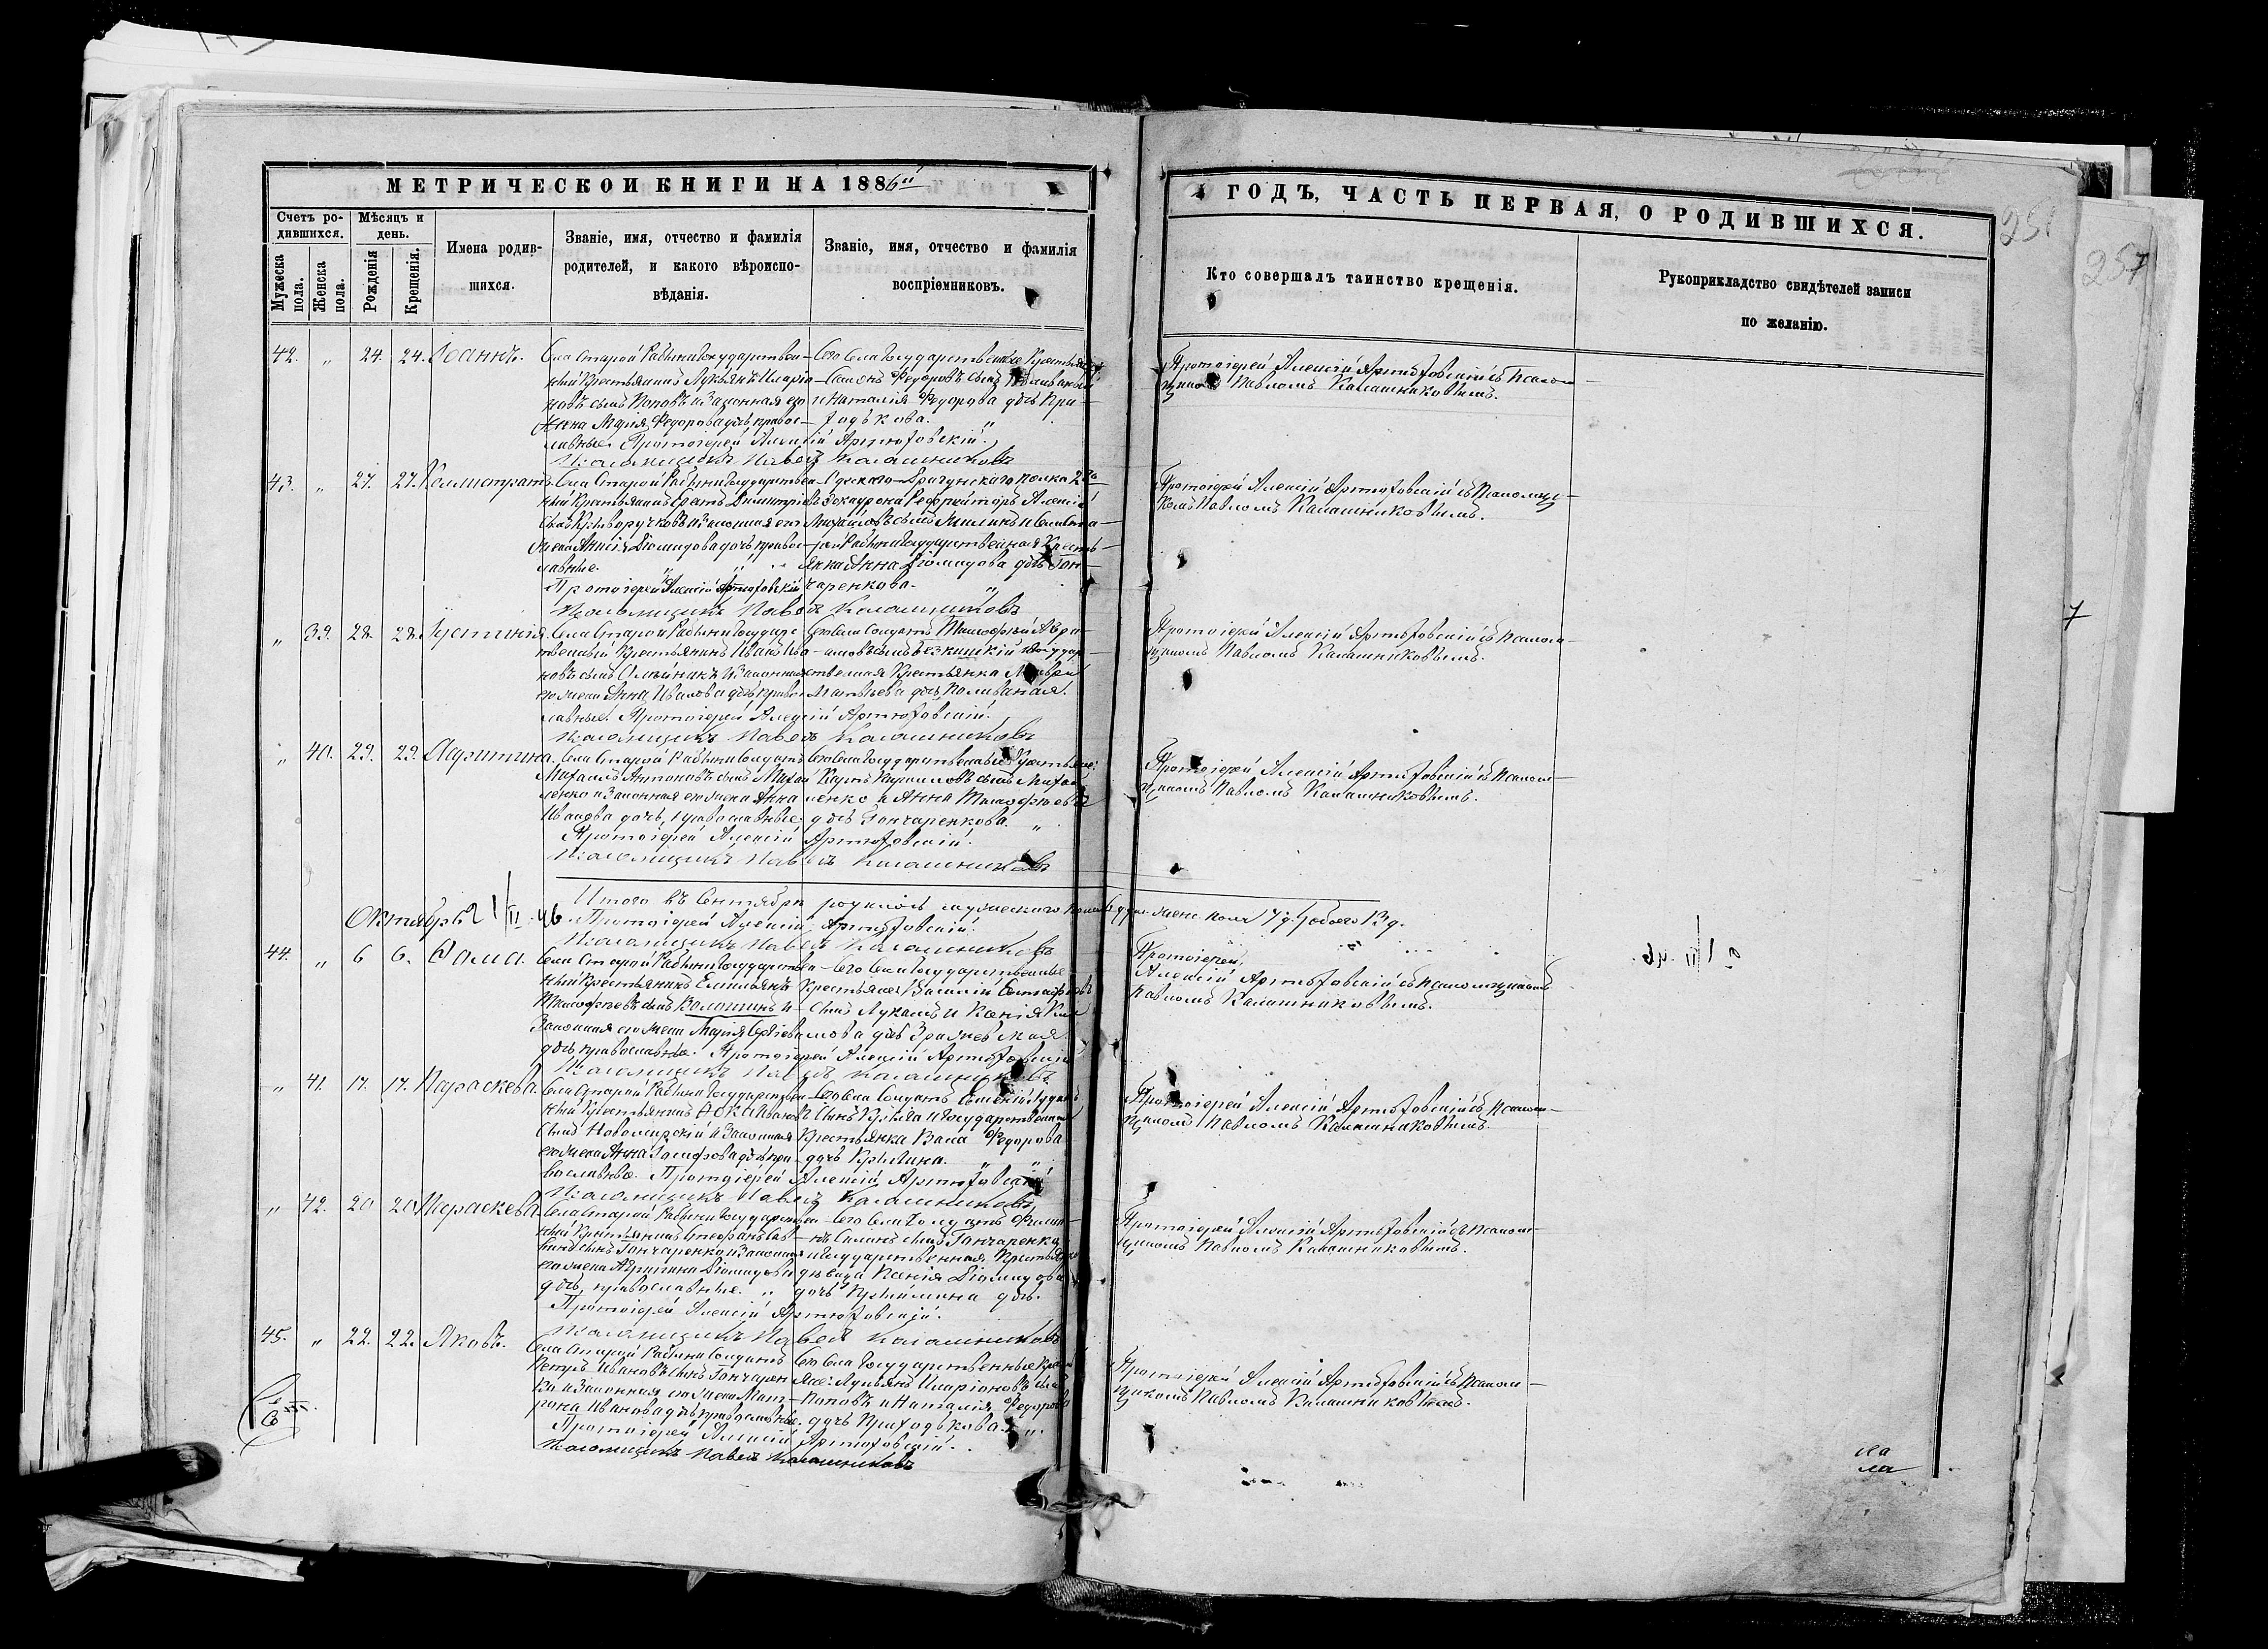 МЕТРИЧЕСКОЙ КНИГИ НА 1886й
ГОДЪ, ЧАСТЬ ПЕРВАЯ, О РОДИВШИХСЯ.
251
257
Счетъ ро-
дившихся.
Мѣсяцъ и
день.
Мужеска
пола.
Женска
пола.
Рожденія
Крещенія.
Имена родив-
шихся.
Званіе, имя, отчество и фамилія
родителей, и какого вѣроиспо-
вѣданія.
Званіе, имя, отчество и фамилія
воспріемниковъ.
Кто совершалъ таинство крещенія.
Рукоприкладство свидѣтелей записи
по желанію.
42. " 24. 24. Іоаннъ.
Села Старой Рабыни Государствен-
ный Крестьянинъ Лукьянъ Иларіо-
новъ сынъ Поповъ и Законная его
жена Марія Федорова дочь правос-
лавные. Протоіерей Алексій Артюховскій.
Псаломщикъ Павелъ Калашниковъ
Его Села Государственные Крестьяне
Семенъ Федоровъ сынъ
и Наталія Федорова дочь При-
ходькова. "
Протоіерей Алексій Артюховскій съ Псалом-
щикомъ Павломъ Калашниковымъ.
43. " 27. 27.
Села Старой Рабыни Государствен-
ный Крестьянинъ Димитріевъ
сынъ Криворучковъ и Законная его
жена Анисія Діомидова дочь правос-
лавные. "
Протоіерей Алексій Артюховскій
Псаломщикъ Павелъ Калашниковъ
Драгунскаго полка 2го
Ефрейторъ Алексій
Михайловъ сынъ
Рабыни Государственная Кресть-
янка Анна Діомидова дочь Гон-
чаренкова. "
Протоіерей Алексій Артюховскій съ Псаломщи-
комъ Павломъ Калашниковымъ.
" 39. 28. 28. Устинія.
Села Старой Рабыни Государс-
твенный Крестьянинъ Иванъ Ива-
новъ сынъ Олейникъ и Законная
его жена Анна Иванова дочь правос-
лавные. Протоіерей Алексій Артюховскій.
Псаломщикъ Павелъ Калашниковъ
Его Села Солдатъ Тимофей
Государ-
ственная Крестьянка
Матвѣева дочь Поливаная.
Протоіерей Алексій Артюховскій съ Псалом-
щикомъ Павломъ Калашниковымъ.
7
" 40. 29. 29. Агрипина.
Села Старой Рабыни Солдатъ
Михаилъ Антоновъ сынъ Михай-
ленко и Законная его жена Анна
Иванова дочь, православные.
Протоіерей Алексій Артюховскій.
Псаломщикъ Павелъ Калашниковъ
Его Села Государственные Крестьяне:
Карпъ Кирилловъ сынъ Михай-
ленко и Анна Тимофеева
дочь Гончаренкова. "
Протоіерей Алексій Артюховскій съ Псалом-
щикомъ Павломъ Калашниковымъ.
Итого въ Сентябрѣ родилось мужескаго пола 6 д. жен. пола 7 д. обоего 13 д.
Протоіерей Алексій Артюховскій.
Псаломщикъ Павелъ Калашниковъ
Октябрь
44. " 6 6. Ѳома.
Села Старой Рабыни Государствен-
ный Крестьянинъ Емельянъ
Тимофеевъ сынъ Колотинъ и
Законная его жена Марія Сергіева
дочь, православные. Протоіерей Алексій Артюховскій
Псаломщикъ Павелъ Калашниковъ.
Его Села Государственные
Крестьяне: Василій Евстафіевъ
сынъ Лукашъ и Ксенія
Протоіерей
Алексій Артюховскій съ Псаломщикомъ
Павломъ Калашниковымъ.
" 41. 17. 17. Параскева.
Села Старой Рабыни Государствен-
ный Крестьянинъ Ѳока Ивановъ
сынъ Новомирскій и Законная
его жена Анна Іосифова дочь пра-
вославные. Протоіерей Алексій Артюховскій
Псаломщикъ Павелъ Калашниковъ
Его Села Солдатъ
и Государственная
Крестьянка Васа Федорова
дочь Крылина. " "
Протоіерей Алексій Артюховскій съ Псалом-
щикомъ Павломъ Калашниковымъ.
" 42. 20 20 Параскева
Села Старой Рабыни Государствен-
ный Крестьянинъ Стефанъ Сав-
винъ сынъ Гончаренко и Законная
его жена Агрипина Діомидова
дочь, православные. "
Протоіерей Алексій Артюховскій.
Псаломщикъ Павелъ Калашниковъ
Его Села Солдатъ Филип-
пъ Силинъ сынъ Гончаренко
и Государственная Крестьянка
дѣвица Ксенія Діомидова
дочь
Протоіерей Алексій Артюховскій съ Псалом-
щикомъ Павломъ Калашниковымъ.
45. " 22. 22. Яковъ.
Села Старой Рабыни Солдатъ
Петръ Ивановъ сынъ Гончарен-
ко и Законная его жена Мат-
рона Иванова дочь православные.
Протоіерей Алексій Артюховскій.
Псаломщикъ Павелъ Калашниковъ
Его Села Государственные Крест-
яне: Лукьянъ Иларіоновъ сынъ
Поповъ и Наталія Федорова
дочь Приходькова. "
Протоіерей Алексій Артюховскій съ Псалом-
щикомъ Павломъ Калашниковымъ.